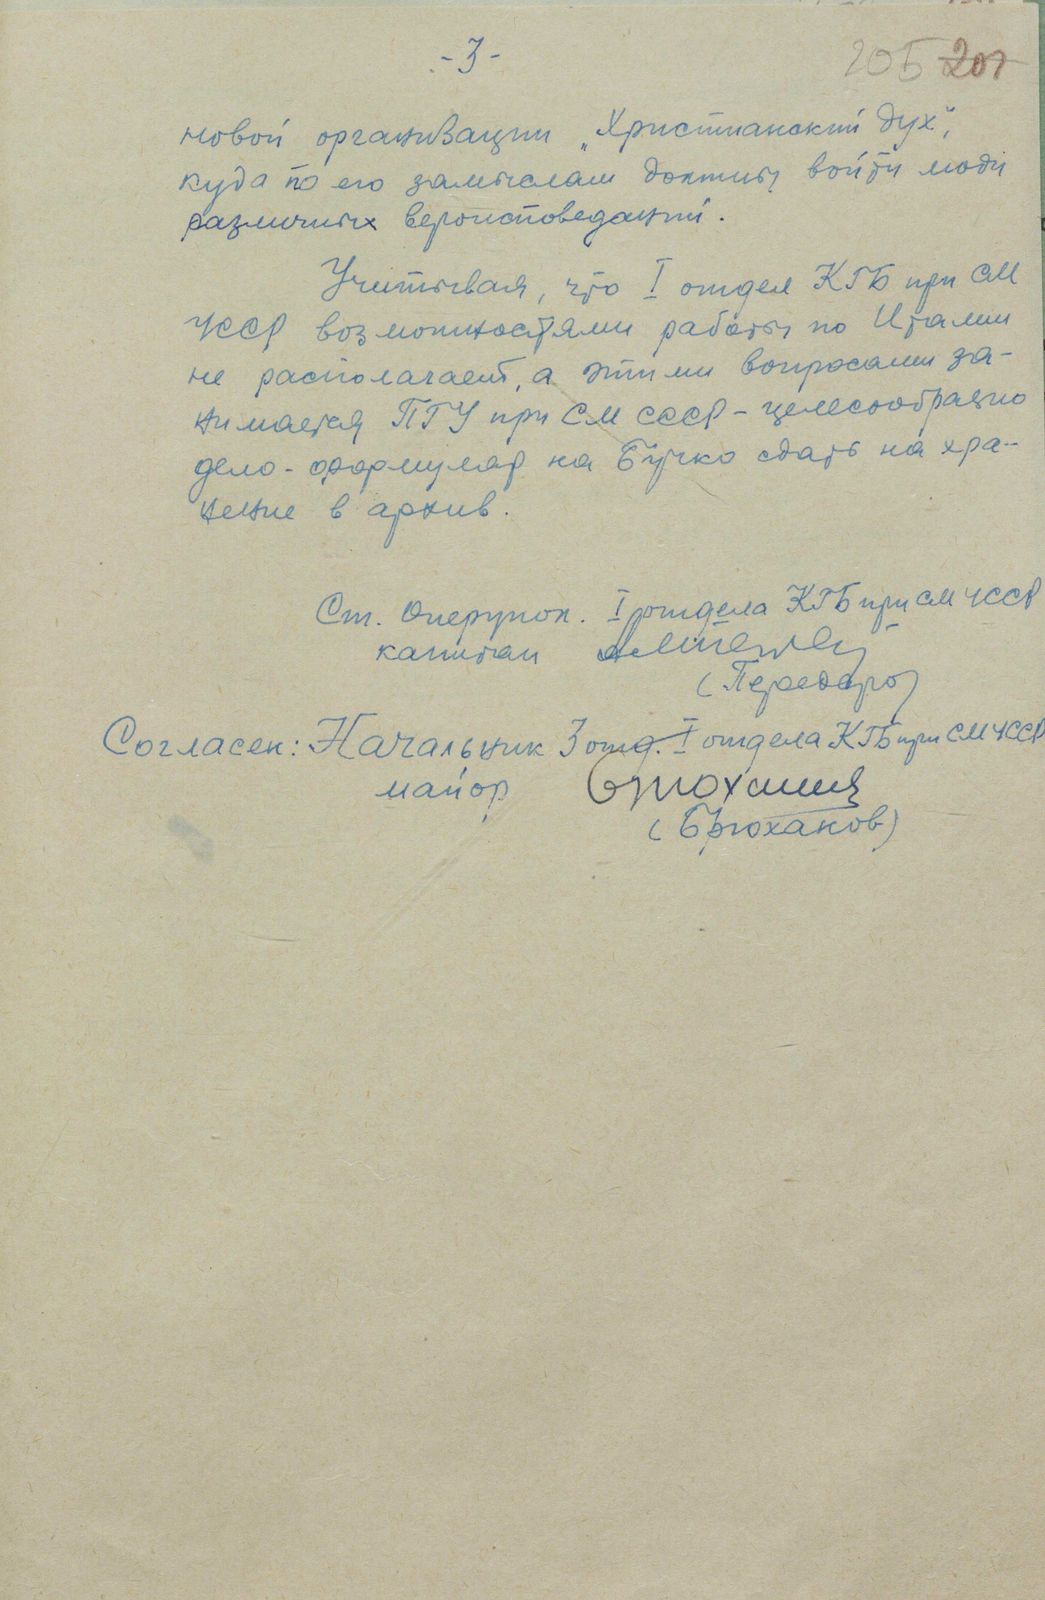 -3-
205 207
новой организации „Христианский дух",
куда по его замыслам должны войти люди
различных вероисповеданий.
Учитывая, что I отдел КГБ при СМ
УССР возможностями работы по Италии
не располагает, а этими вопросами за-
нимается ПГУ при СМ СССР - целесообразно
дело-формуляр на Бучко сдать на хра-
нение в архив.
Ст. Оперупол. I отдела КГБ при СМ УССР
капитан
Согласен: Начальник 3 отд. I отдела КГБ при СМ УССР
майор
(Брюханов)